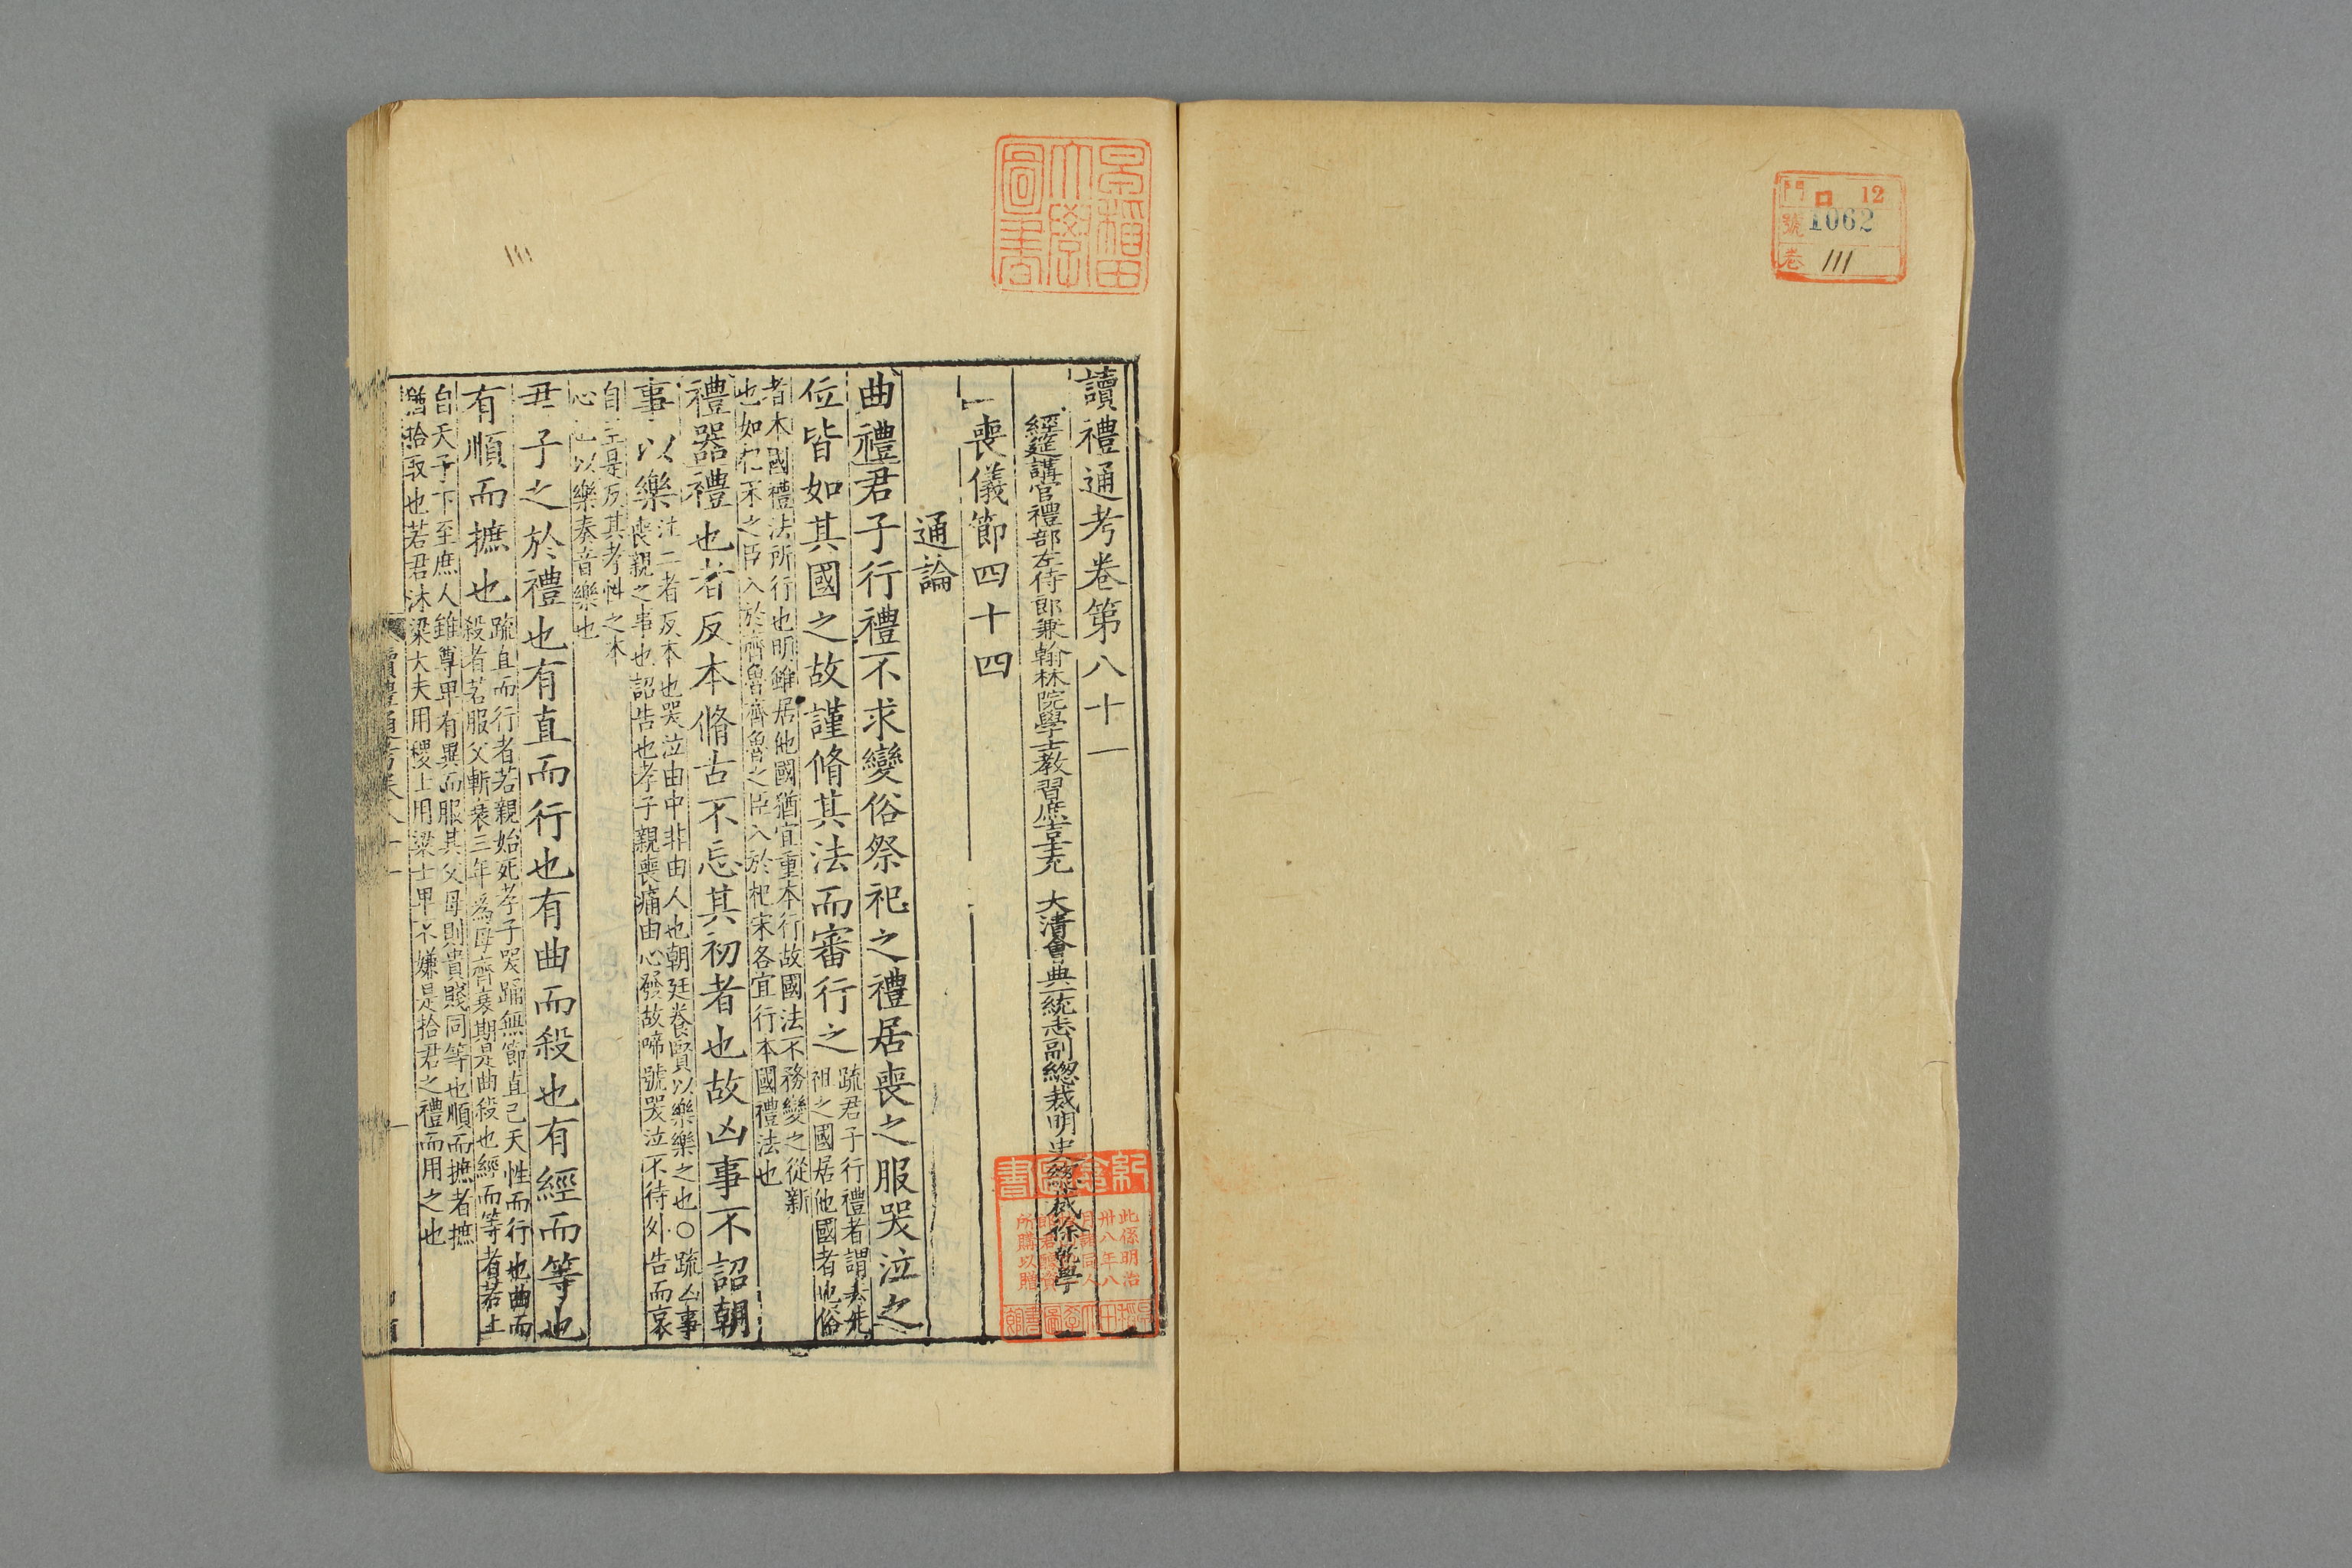 門 口 12
號 1062
卷 111
早稻田大學圖書
111
讀禮通考卷第八十一
經筵講官禮部左侍郎兼翰林院學士教習庶吉士充 大清會典一統志副總裁明史總裁徐乾學
喪儀節四十四
通論
曲禮君子行禮不求變俗祭祀之禮居喪之服哭泣之
位皆如其國之故謹脩其法而審行之
疏君子行禮者謂去先
祖之國居他國者也俗
者本國禮法所行也明雖居他國猶宜重本行故國法不務變之從新
也如杞宋之臣入於齊魯齊魯之臣入於杞宋各宜行本國禮法也
禮器禮也者反本脩古不忘其初者也故凶事不詔朝
事以樂
注二者反本也哭泣由中非由人也朝廷養賢以樂樂之也○疏凶事
喪親之事也詔告也孝子親喪痛由心發故啼號哭泣不待外告而哀
自至是反其孝性之本
心也以樂奏音樂也
君子之於禮也有直而行也有曲而殺也有經而等也
有順而摭也
疏直而行者若親始死孝子哭踊無節直己天性而行也曲而
殺者若服父斬衰三年為母齊衰期是曲殺也經而等者若上
自天子下至庶人雖尊卑有異而服其父母則貴賤同等也順而摭者摭
猶拾取也若君沐粱大夫用稷士用粱士卑不嫌是拾君之禮而用之也
讀禮通考卷八十一
一
此係明治
卅八年八
所購以贈